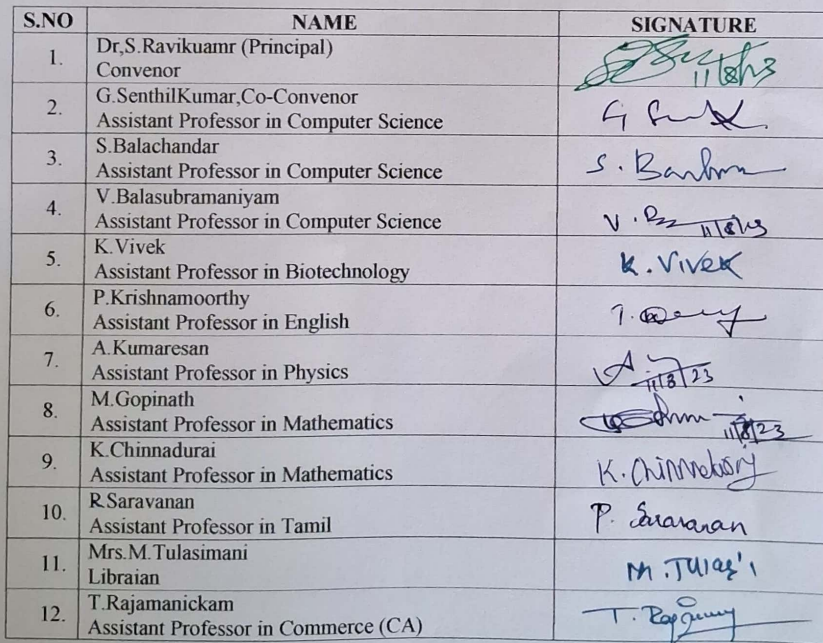 S.NO NAME SIGNATURE
1. Dr,S.Ravikuamr (Principal)
Convenor
11/8/23
2. G.SenthilKumar,Co-Convenor
Assistant Professor in Computer Science
3. S.Balachandar
Assistant Professor in Computer Science
4. V.Balasubramaniyam
Assistant Professor in Computer Science
11/8/23
5. K.Vivek K.Vivek
Assistant Professor in Biotechnology
6. P.Krishnamoorthy
Assistant Professor in English
7. A.Kumaresan
Assistant Professor in Physics
11/8/23
8. M.Gopinath
Assistant Professor in Mathematics
11/8/23
9. K.Chinnadurai
Assistant Professor in Mathematics
10. R.Saravanan P. Saravanan
Assistant Professor in Tamil
11. Mrs.M.Tulasimani
Libraian
12. T.Rajamanickam
Assistant Professor in Commerce (CA)